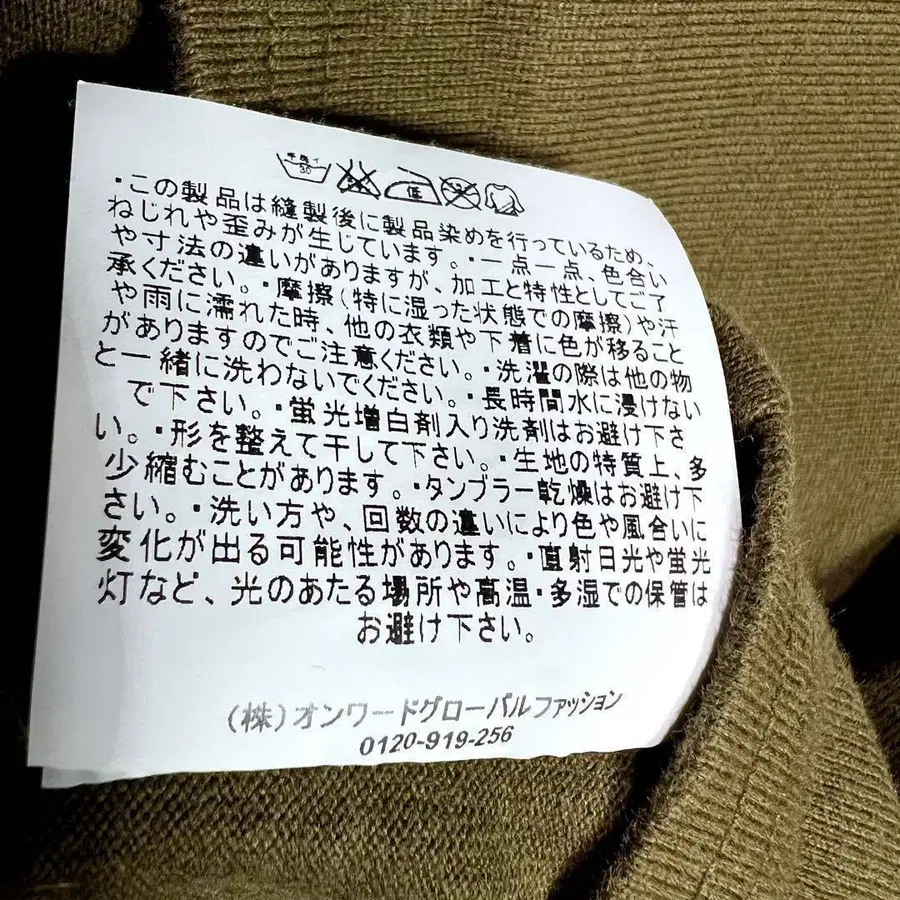 手洗イ
30
低
・この製品は縫製後に製品染めを行っているため、
ねじれや歪みが生じています。・一点一点、色合い
や寸法の違いがありますが、加工と特性としてご了
承ください。・摩擦(特に湿った状態での摩擦)や汗
や雨に濡れた時、他の衣類や下着に色が移ること
がありますのでご注意ください。・洗濯の際は他の物
と一緒に洗わないでください。・長時間水に浸けない
で下さい。・蛍光増白剤入り洗剤はお避け下さ
い。・形を整えて干して下さい。・生地の特質上、多
少縮むことがあります。・タンブラー乾燥はお避け下
さい。・洗い方や、回数の違いにより色や風合いに
変化が出る可能性があります。・直射日光や蛍光
灯など、光のあたる場所や高温・多湿での保管は
お避け下さい。
(株)オンワードグローバルファッション
0120-919-256